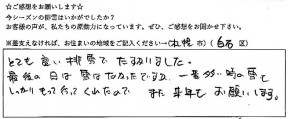 ☆ご感想をお願いします☆
今シーズンの排雪はいかがでしたか？
お客様の声が、私たちの原動力になっています。ぜひ、ご感想をお聞かせ下さい。
※差支えなければ、お住まいの地域をご記入ください→(札幌 市) (白石 区)
とても良い排雪で たすかりました。
最後の日は雪はなかったですが、一番多い時の雪も
しっかりもって行ってくれたので また来年も お願いします。